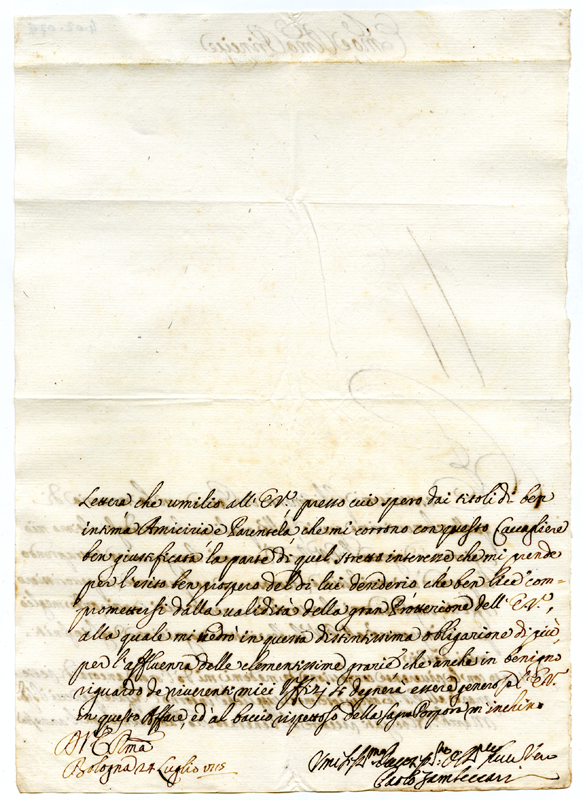 Lettera che umilio all' E.V. presso cui spero dai titoli di ben
intima Amicizia e Parentela che mi corrono con questo Cavagliere
ben giustificata la parte di quel stretto interesse che mi prende
per l'esito ben prospero del di lui desiderio che ben lice com-
promettersi dalla validità della gran Protezzione dell' E.V.,
alla quale mi vedrò in questa distintissima obligazione di più,
per l'affluenza delle clementissime grazie che anche in benigno
riguardo de riverenti miei Uffizj si degnerà essere generosa l' E.V.
in questo Affare, ed al baccio rispettoso della Sagra Porpora m'inchino
Di V. Em.ma
Bologna 24 Luglio
Carlo Zambeccari